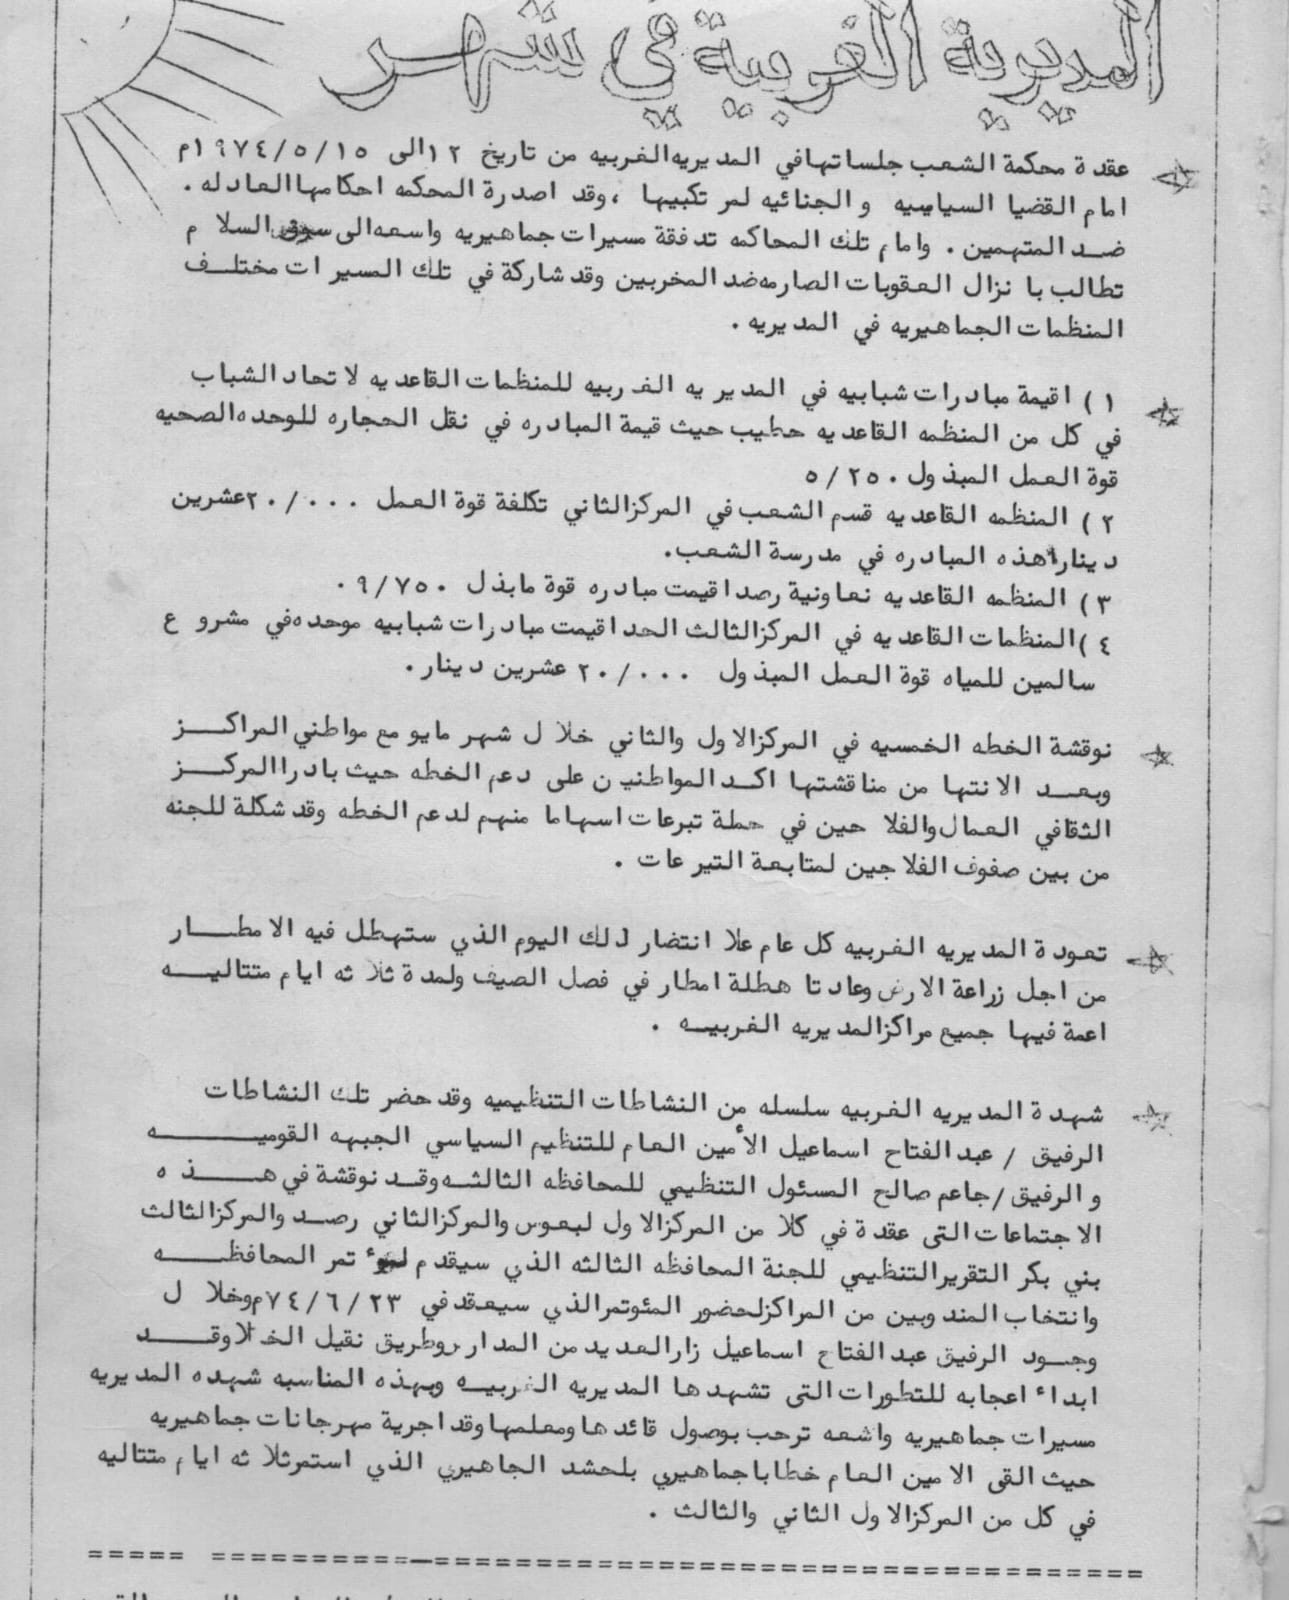 المديرية الغربية في شهر
عقدة محكمة الشعب جلساتها في المديريه الغربيه من تاريخ ١٢ الى ١٥/٥/١٩٧٤م
امام القضيا السياسيه و الجنائيه لمرتكبيها ، وقد اصدرة المحكمه احكامها العادله .
ضد المتهمين . وامام تلك المحاكمه تدفقة مسيرات جماهيريه واسعه الى سوق السلام
تطالب با نزال العقوبات الصارمه ضد المخربين وقد شاركة في تلك المسيرات مختلف
المنظمات الجماهيريه في المديريه .
١ ) اقيمة مبادرات شبابيه في المديريه الغربيه للمنظمات القاعديه لاتحاد الشباب
في كل من المنظمه القاعديه حطيب حيث قيمة المبادره في نقل الحجاره للوحده الصحيه
قوة العمل المبذول ٥/٢٥٠
٢ ) المنظمه القاعديه قسم الشعب في المركز الثاني تكلفة قوة العمل ٢٠/٠٠٠ عشرين
دينارا هذه المبادره في مدرسة الشعب.
٣ ) المنظمه القاعديه تعاونية رصد اقيمت مبادره قوة مابذل ٩/٧٥٠ .
٤ ) المنظمات القاعديه في المركز الثالث الحد اقيمت مبادرات شبابيه موحده في مشروع
سالمين للمياه قوة العمل المبذول ٢٠/٠٠٠ عشرين دينار .
نوقشة الخطه الخمسيه في المركز الاول والثاني خلال شهر مايو مع مواطني المراكز
وبعد الانتها من مناقشتها اكد المواطنين على دعم الخطه حيث بادرا المركز
الثقافي العمال والفلاحين في حملة تبرعات اسهاما منهم لدعم الخطه وقد شكلة للجنه
من بين صفوف الفلاجين لمتابعة التيرعات .
تعودة المديريه الغربيه كل عام علا انتضار ذلك اليوم الذي ستهطل فيه الامطار
من اجل زراعة الارض وعادتا هطلة امطار في فصل الصيف ولمدة ثلاثه ايام متتاليه
اعمة فيها جميع مراكز المديريه الغربيه .
شهدة المديريه الغربيه سلسله من النشاطات التنظيميه وقد حضر تلك النشاطات
الرفيق / عبد الفتاح اسماعيل الأمين العام للتنظيم السياسي الجبهه القوميه
و الرفيق / جاعم صالح المسئول التنظيمي للمحافظه الثالثه وقد نوقشة في هذه
الاجتماعات التى عقدة في كلا من المركز الاول لبعوس والمركز الثاني رصد والمركز الثالث
بني بكر التقرير التنظيمي للجنة المحافظه الثالثه الذي سيقدم لمؤتمر المحافظه
وانتخاب المندوبين من المراكز لحضور المئوتمر الذي سيعقد في ٢٣/٦/٧٤م وخلال
وجود الرفيق عبد الفتاح اسماعيل زار العديد من المدارس وطريق نقيل الخلا وقد
ابداء اعجابه للتطورات التى تشهدها المديريه الغربيه وبهذه المناسبه شهده المديريه
مسيرات جماهيريه واشعه ترحب بوصول قائدها ومعلمها وقد اجرية مهرجانات جماهيريه
حيث القى الامين العام خطابا جماهيري بلحشد الجاهيري الذي استمر ثلاثه ايام متتاليه
في كل من المركز الاول الثاني والثالث .